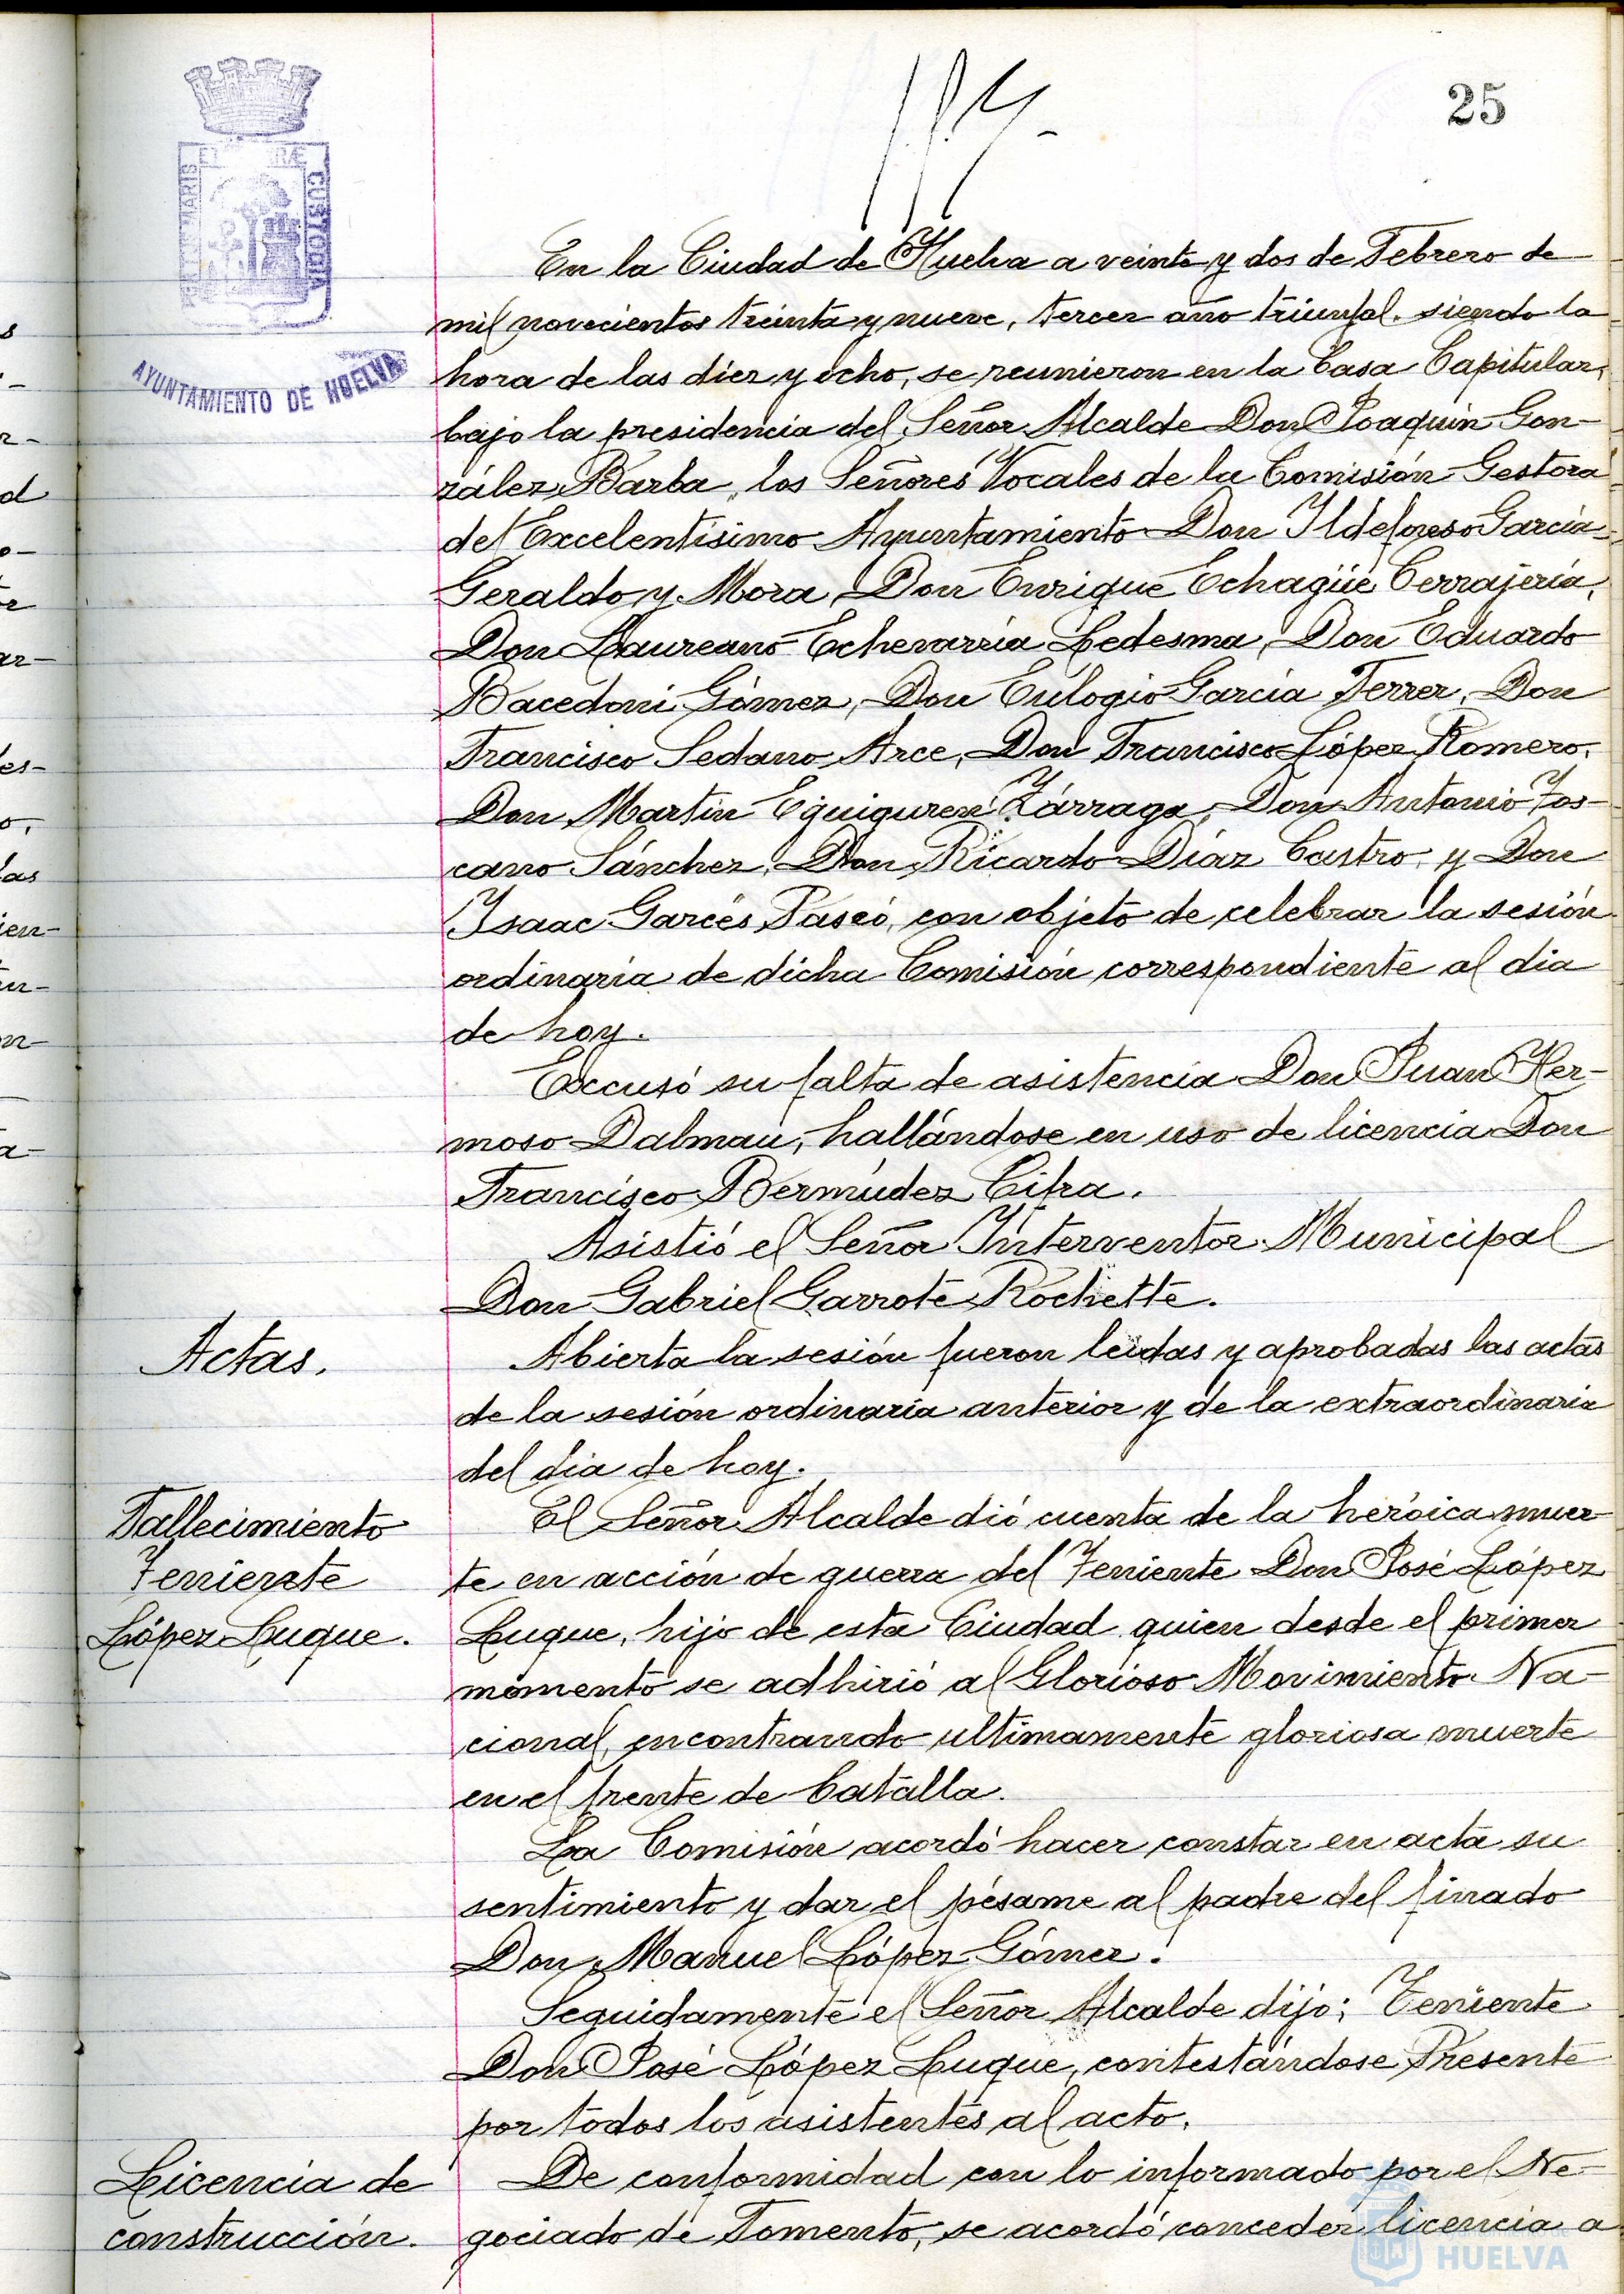 25
PORTUS MARIS ET TERRÆ CUSTODIA
AYUNTAMIENTO DE HUELVA
En la Ciudad de Huelva a veinte y dos de Febrero de
mil novecientos treinta y nueve, tercer año triunfal, siendo la
hora de las diez y ocho, se reunieron en la Casa Capitular,
bajo la presidencia del Señor Alcalde Don Joaquín Gon-
zález Barba, los Señores Vocales de la Comisión Gestora
del Excelentísimo Ayuntamiento Don Ildefonso García-
Geraldo y Mora, Don Enrique Echagüe Cerrajería,
Don Laureano Echevarría Ledesma, Don Eduardo
Bacedoni Gómez, Don Eulogio García Ferrer, Don
Francisco Sedano Arce, Don Francisco López Romero,
Don Martín Eguiguren Zárraga, Don Antonio Tos-
cano Sánchez, Don Ricardo Díaz Castro, y Don
Isaac Garcés Paseó, con objeto de celebrar la sesión
ordinaria de dicha Comisión correspondiente al dia
de hoy.
Excusó su falta de asistencia Don Juan Her-
moso Dalmau, hallándose en uso de licencia Don
Francisco Bermúdez Cifra.
Asistió el Señor Interventor Municipal
Don Gabriel Garrote Rochette.
Actas.
Abierta la sesión fueron leidas y aprobadas las actas
de la sesión ordinaria anterior y de la extraordinaria
del dia de hoy.
Fallecimiento
Teniente
López Luque.
El Señor Alcalde dió cuenta de la heróica muer-
te en acción de guerra del Teniente Don José López
Luque, hijo de esta Ciudad quien desde el primer
momento se adhirió al Glorioso Movimiento Na-
cional, encontrando ultimamente gloriosa muerte
en el frente de batalla.
La Comisión acordó hacer constar en acta su
sentimiento y dar el pésame al padre del finado
Don Manuel López Gómez.
Seguidamente el Señor Alcalde dijo; Teniente
Don José López Luque, contestándose Presente
por todos los asistentes al acto.
Licencia de
construcción.
De conformidad con lo informado por el Ne-
gociado de Fomento, se acordó conceder licencia a
HUELVA